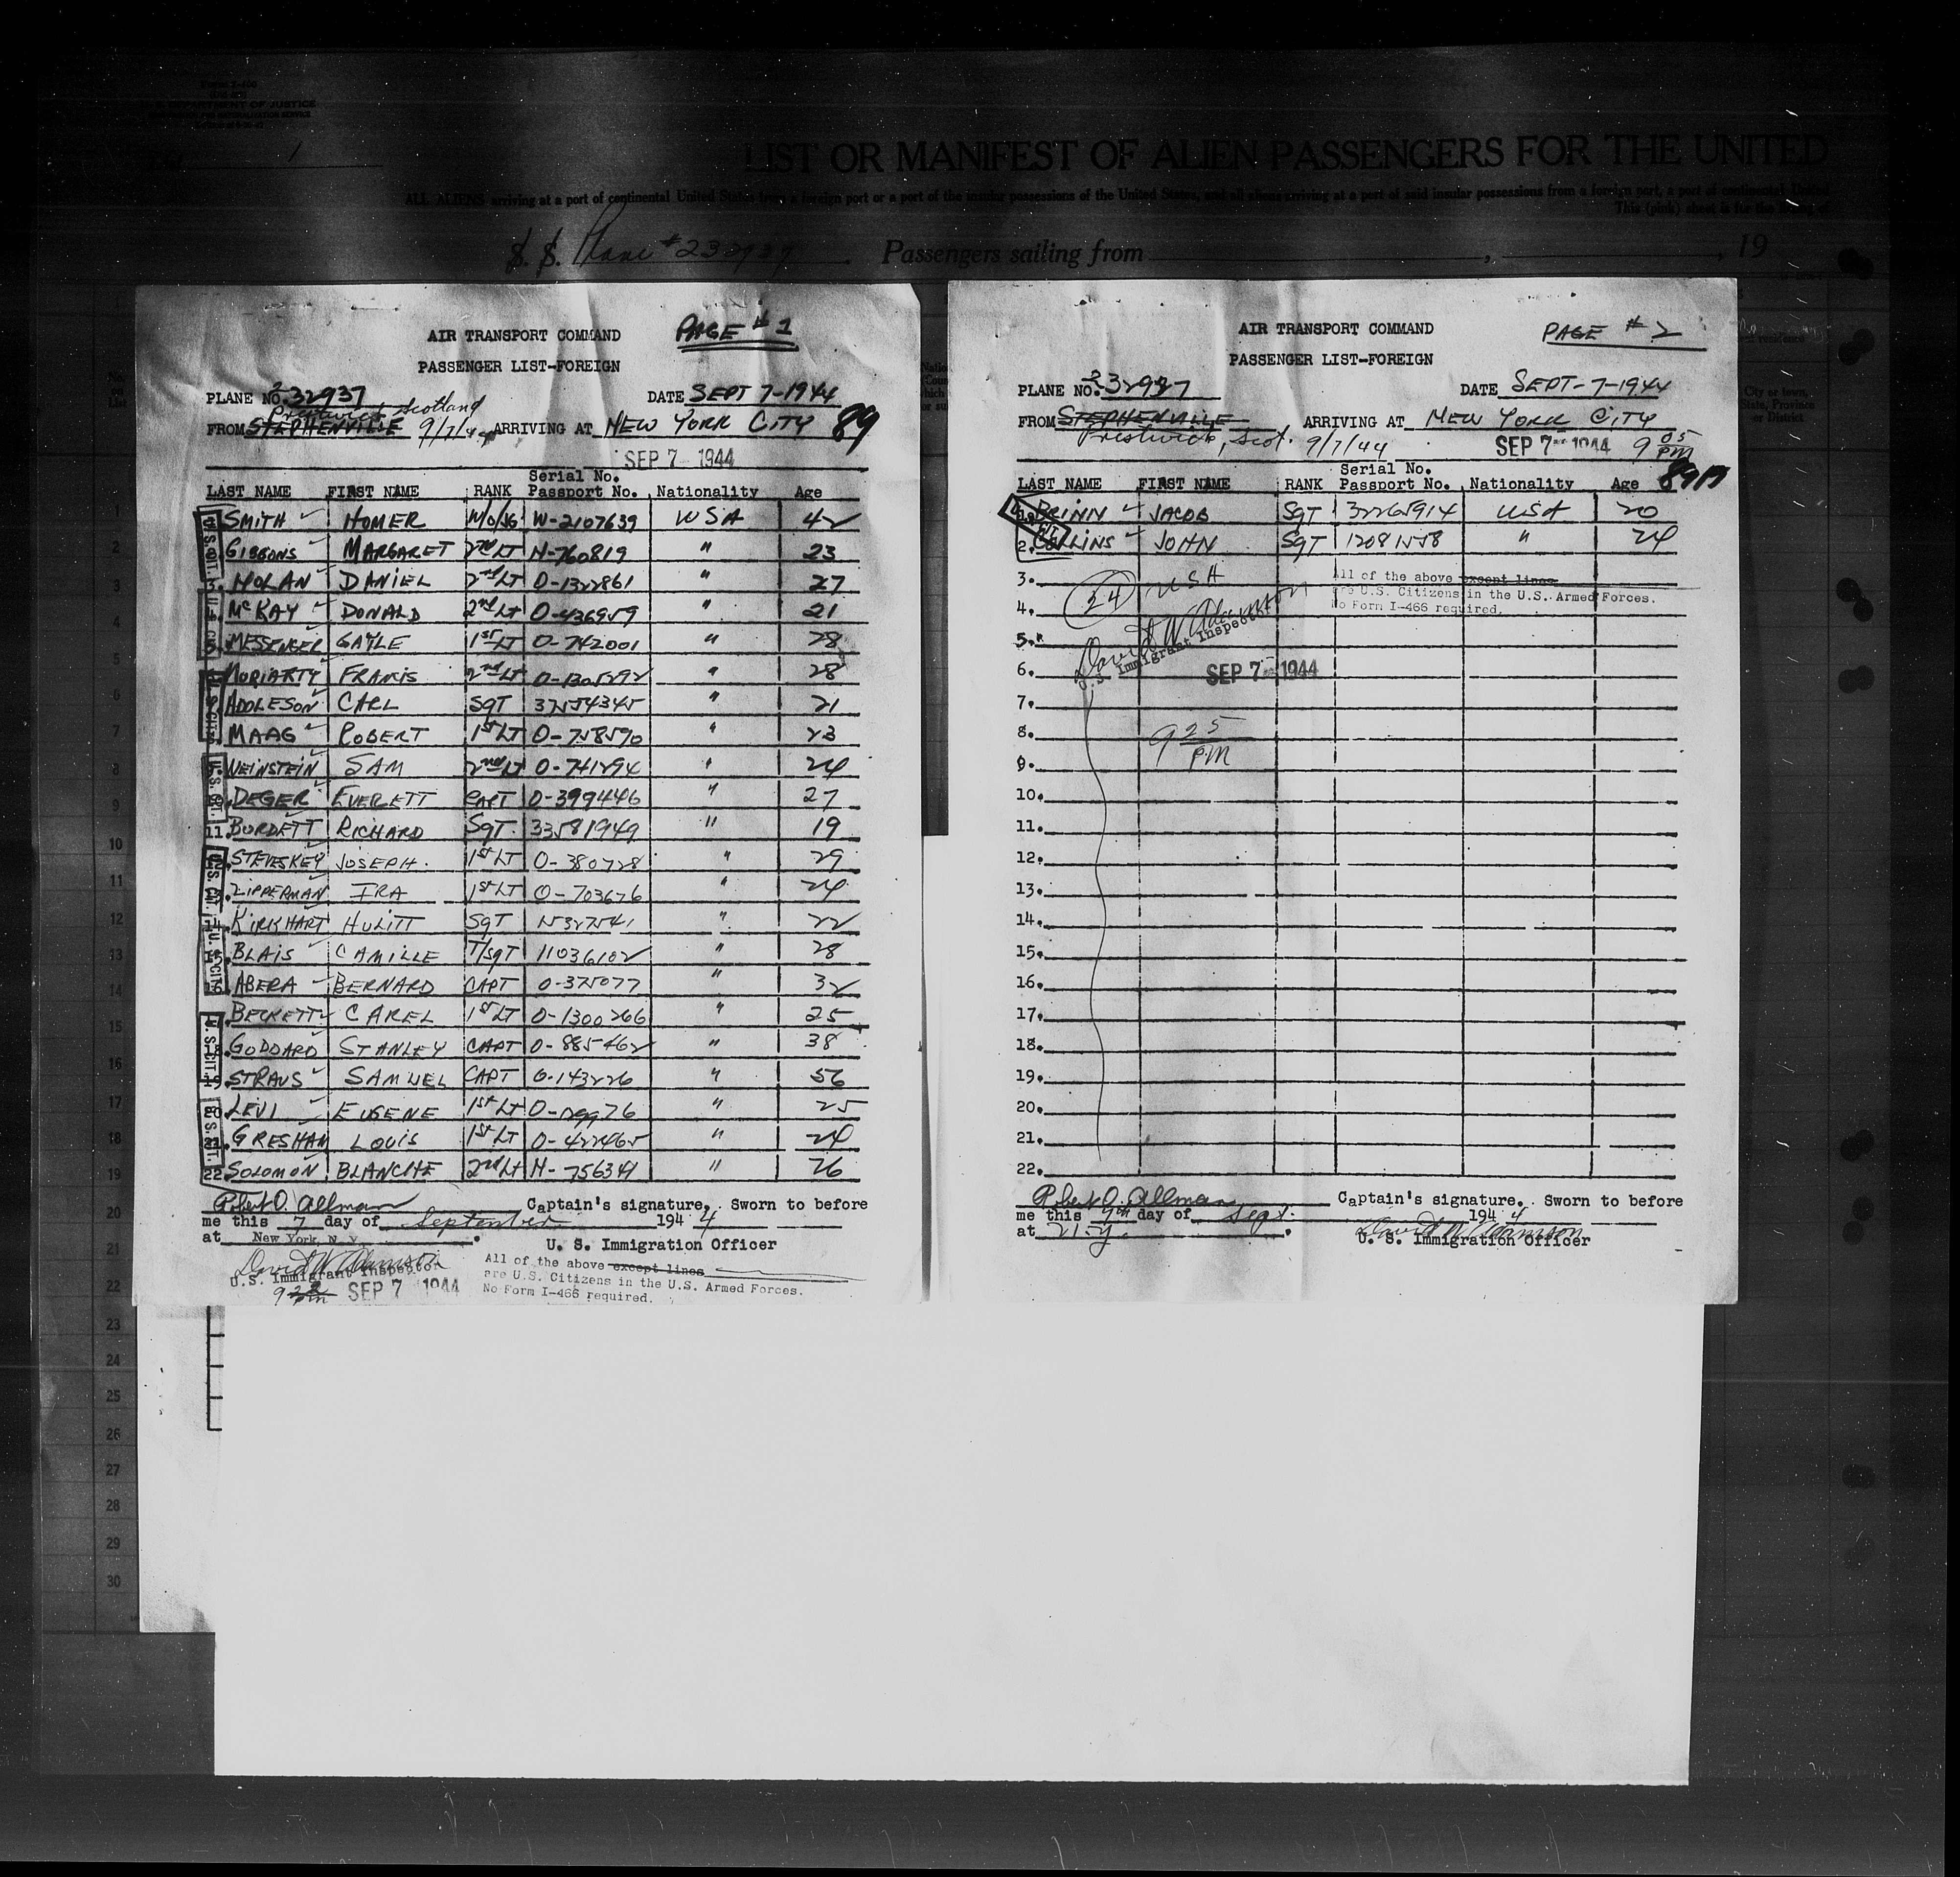 U.S. DEPARTMENT OF JUSTICE
1
LIST OR MANIFEST OF ALIEN PASSENGERS FOR THE UNITED
ALL ALIENS arriving at a port of continental United States from a foreign port or a port of the insular possessions of the United States, and all aliens arriving at a port of said insular possessions from a foreign port, a port of continental United
This (pink) sheet is for the listing of
S. S. Plane #232937 . Passengers sailing from , , 19
AIR TRANSPORT COMMAND PAGE #1
PASSENGER LIST-FOREIGN
PLANE NO. 232937 DATE SEPT 7-1944
Prestwick Scotland
FROM STEPHENVILLE 9/7/44 ARRIVING AT NEW YORK CITY 89
SEP 7 1944
Serial No.
LAST NAME FIRST NAME RANK Passport No. Nationality Age
SMITH HOMER W/O/JG W-2107639 USA 42
GIBBONS MARGARET 2nd LT N-760819 " 23
3. NOLAN DANIEL 2nd LT O-1322861 " 27
McKAY DONALD 2nd LT O-436959 " 21
MESSENGER GAYLE 1st LT O-742001 " 28
MORIARTY FRANIS 2nd LT O-1305292 " 28
ADOLESON CARL SGT 37554345 " 21
MAAG ROBERT 1st LT O-758590 " 23
WEINSTEIN SAM 2nd LT O-741294 " 24
DEGER EVERETT CAPT O-399446 " 27
11. BURDETT RICHARD SGT. 33581949 " 19
STEVESKEY JOSEPH. 1st LT O-380728 " 29
ZIPPERMAN IRA 1st LT O-703676 " 24
14. KIRKHART HULITT SGT 15327541 " 22
BLAIS CAMILLE T/SGT 11036102 " 28
16. ABERA BERNARD CAPT O-375077 " 32
BECKETT CAREL 1st LT O-1300266 " 25
GODDARD STANLEY CAPT O-885462 " 38
19. STRAUS SAMUEL CAPT O-143226 " 56
20. LEVI EUGENE 1st LT " 25
21. GRESHAM LOUIS 1st LT O-422465 " 24
22. SOLOMON BLANCHE 2nd LT N-756341 " 26
Robert O. Allman Captain's signature. Sworn to before
me this 7 day of September 1944
at New York, N.Y. .
U. S. Immigration Officer
David W. Adamson
U.S. Immigrant Inspector
SEP 7 1944
All of the above except lines
are U.S. Citizens in the U.S. Armed Forces.
No Form I-466 required.
AIR TRANSPORT COMMAND PAGE #2
PASSENGER LIST-FOREIGN
PLANE NO. 232937 DATE SEPT-7-1944
FROM STEPHENVILLE ARRIVING AT NEW YORK CITY
Prestwick, Scot. 9/7/44 SEP 7 1944 9 05 PM
Serial No.
LAST NAME FIRST NAME RANK Passport No. Nationality Age
BRINN JACOB SGT 32265914 USA 20
2. COLLINS JOHN SGT 12081558 " 24
3.
24 USA
All of the above except lines
are U.S. Citizens in the U.S. Armed Forces.
No Form I-466 required.
4.
David W. Adamson
U.S. Immigrant Inspector
5.
6.
SEP 7 1944
7.
8.
9 25 PM
9.
10.
11.
12.
13.
14.
15.
16.
17.
18.
19.
20.
21.
22.
Robert O. Allman Captain's signature. Sworn to before
me this 7th day of Sept. 1944
at N.Y. .
David W. Adamson
U. S. Immigration Officer
City or town,
State, Province
or District
1
2
3
4
5
6
7
8
9
10
11
12
13
14
15
16
17
18
19
20
21
22
23
24
25
26
27
28
29
30